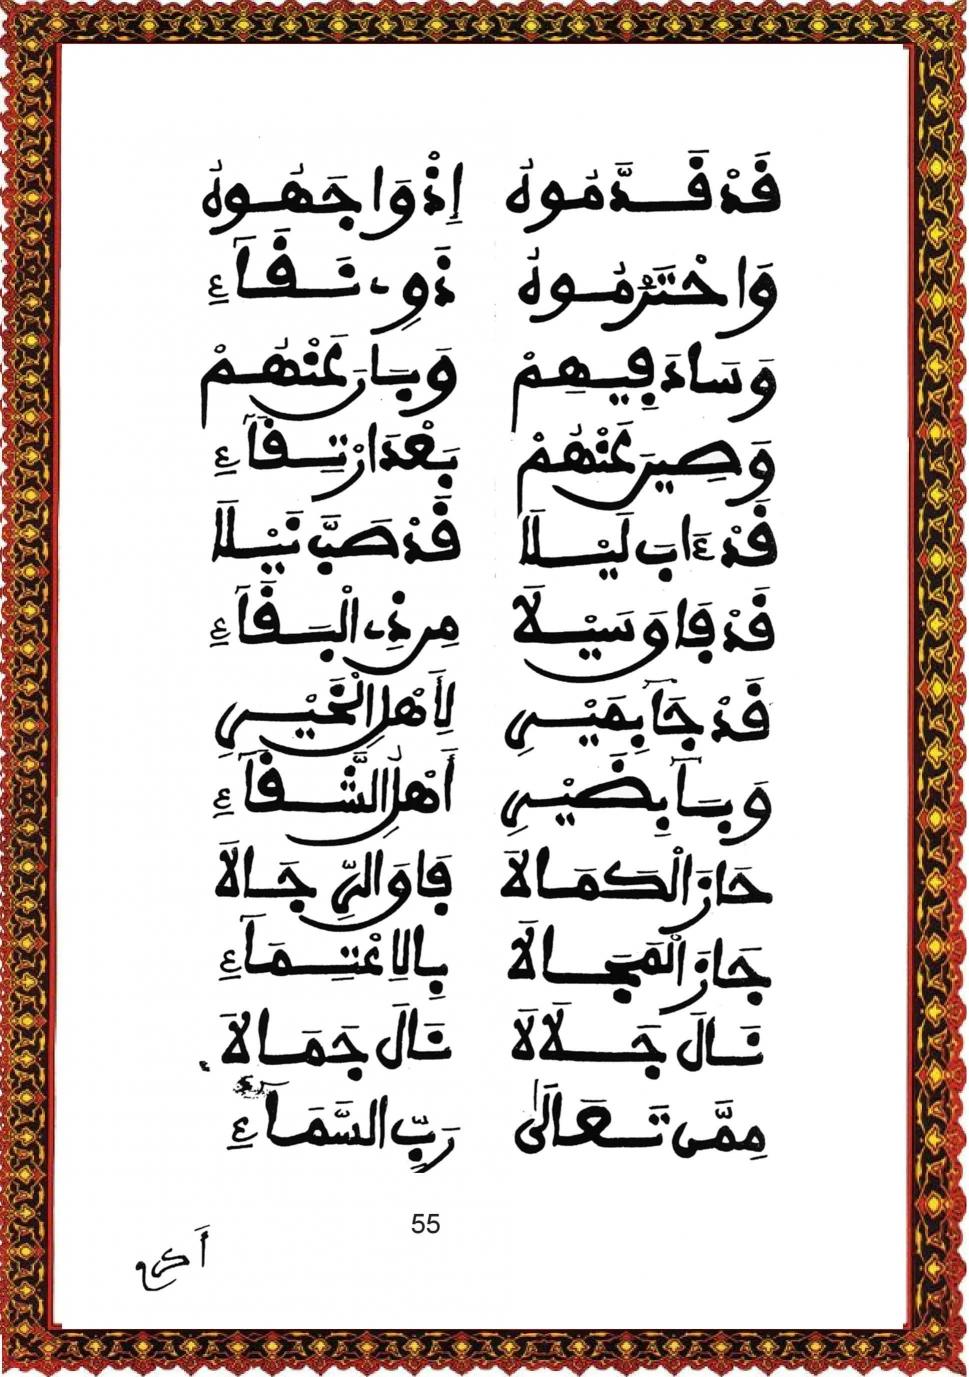 قَدْ قَدَّمُوهُ إِذْ وَاجَهُوهُ
وَاحْتَرَمُوهُ ذَوِي نَقَآءِ
وَسَادَ فِيهِمْ وَبَانَ عَنْهُمْ
وَصِينَ عَنْهُمْ بَعْدَ ارْتِقَآءِ
قَدْ ءَابَ لَيْلَا قَدْ صَبَّ نَيْلَا
قَدْ فَاقَ سَيْلَا مِن ذِي الْبَقَآءِ
قَدْ جَآ بِمَيْرِ لِأَهْلِ الْخَيْرِ
وَبَآ بِضَيْرِ أَهْلُ الشَّقَآءِ
حَازَ الْكَمَالَا فَاقَ الرِّجَالَا
جَازَ الْمَجَالَا بِالِاعْتِمَآءِ
نَالَ جَلَالَا نَالَ جَمَالَا
مِمَّن تَعَالَىٰ رَبِّ السَّمَآءِ
55